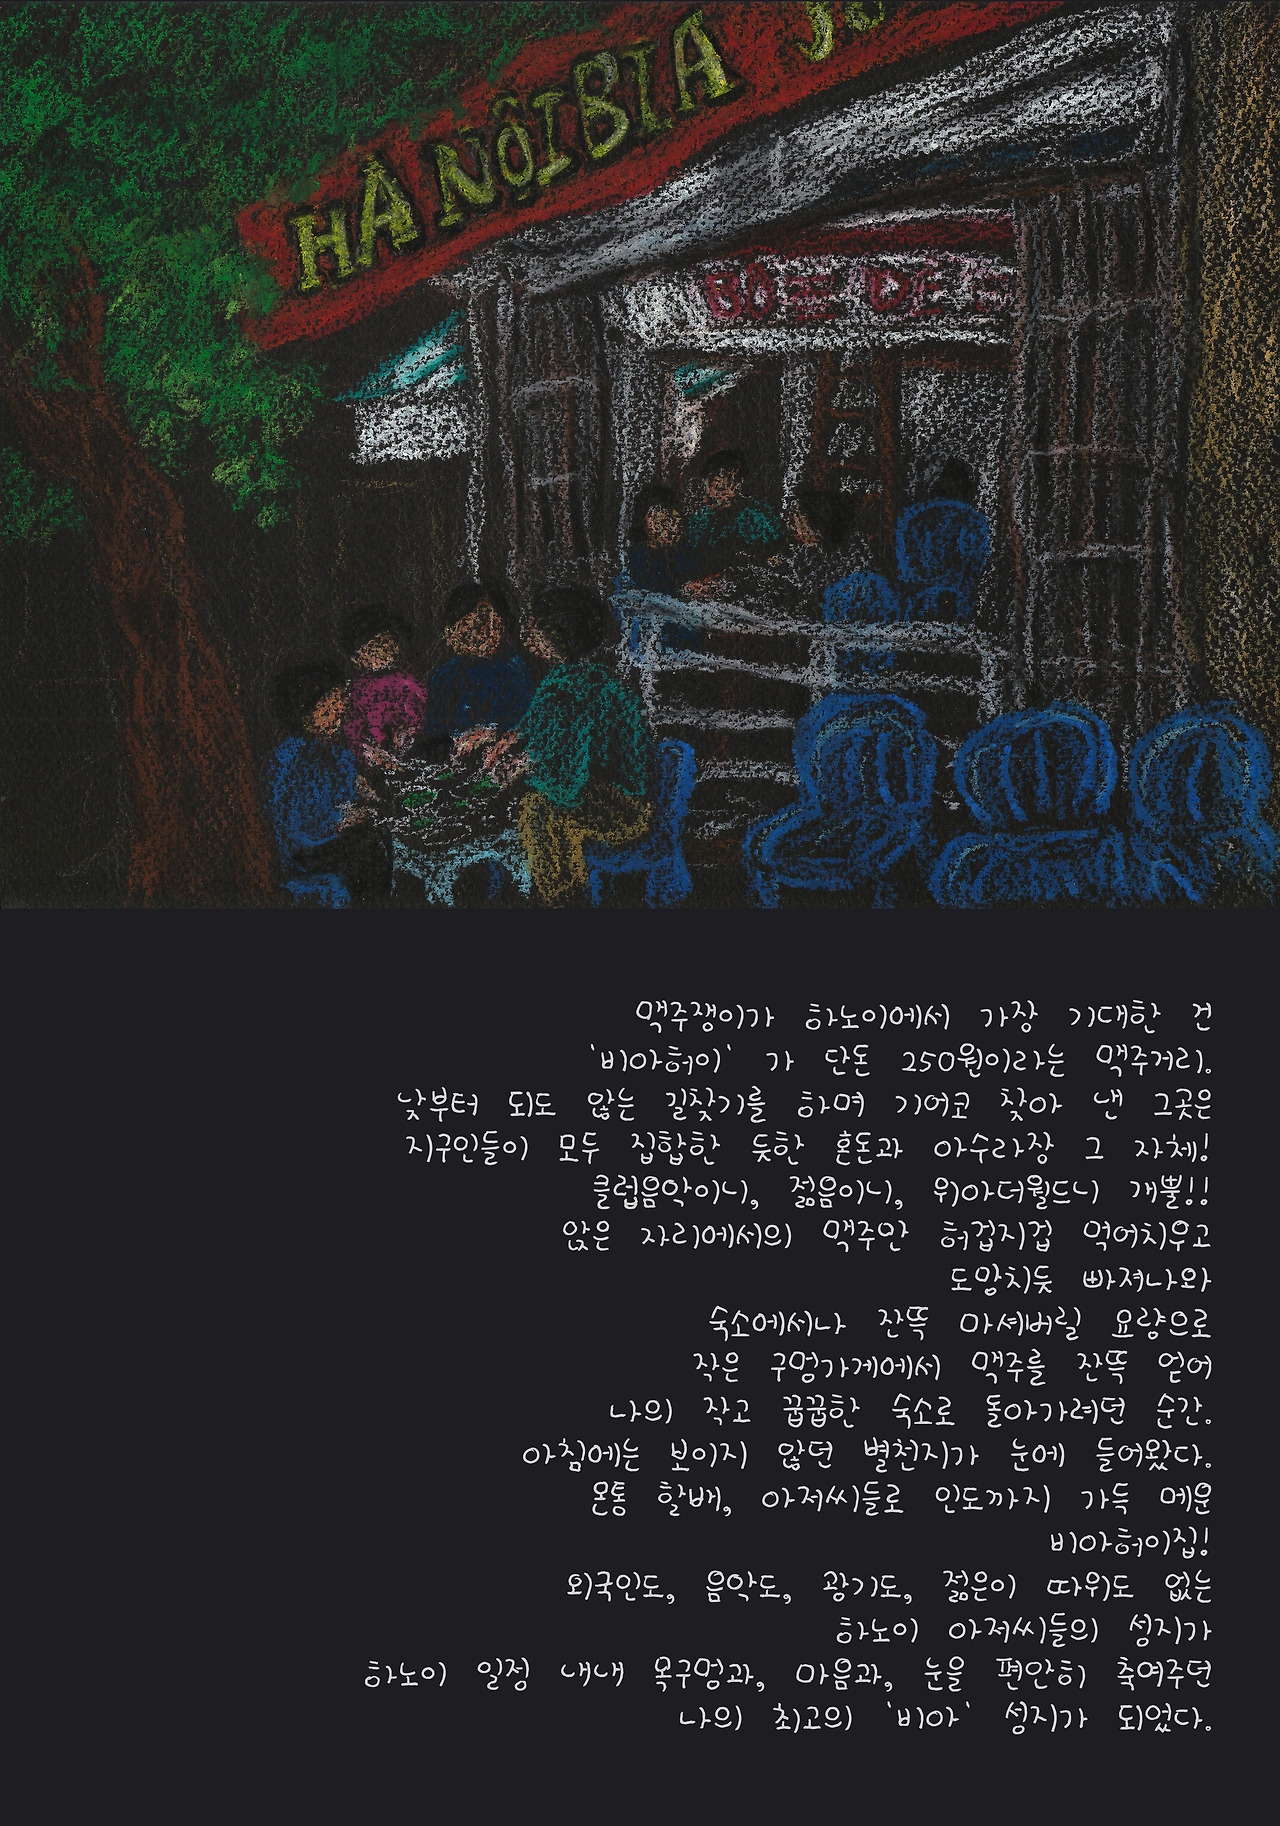 HÀ NỘI BIA
맥주쟁이가 하노이에서 가장 기대한 건
'비아허이' 가 단돈 250원이라는 맥주거리.
낮부터 되도 않는 길찾기를 하며 기어코 찾아 낸 그곳은
지구인들이 모두 집합한 듯한 혼돈과 아수라장 그 자체!
클럽음악이니, 젊음이니, 위아더월드니 개뿔!!
앉은 자리에서의 맥주만 허겁지겁 먹어치우고
도망치듯 빠져나와
숙소에서나 잔뜩 마셔버릴 요량으로
작은 구멍가게에서 맥주를 잔뜩 얻어
나의 작고 꿉꿉한 숙소로 돌아가려던 순간.
아침에는 보이지 않던 별천지가 눈에 들어왔다.
온통 할배, 아저씨들로 인도까지 가득 메운
비아허이집!
외국인도, 음악도, 광기도, 젊은이 따위도 없는
하노이 아저씨들의 성지가
하노이 일정 내내 목구멍과, 마음과, 눈을 편안히 축여주던
나의 최고의 '비아' 성지가 되었다.